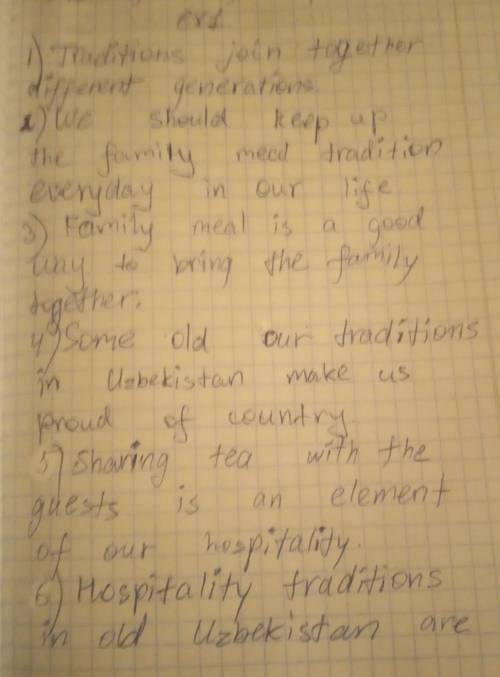 ex1
1) Traditions join together
different generations.
2) We should keep up
the family meal tradition
everyday in our life
3) Family meal is a good
way to bring the family
together.
4) Some old our traditions
in Uzbekistan make us
proud of country.
5) Sharing tea with the
guests is an element
of our hospitality.
6) Hospitality traditions
in old Uzbekistan are